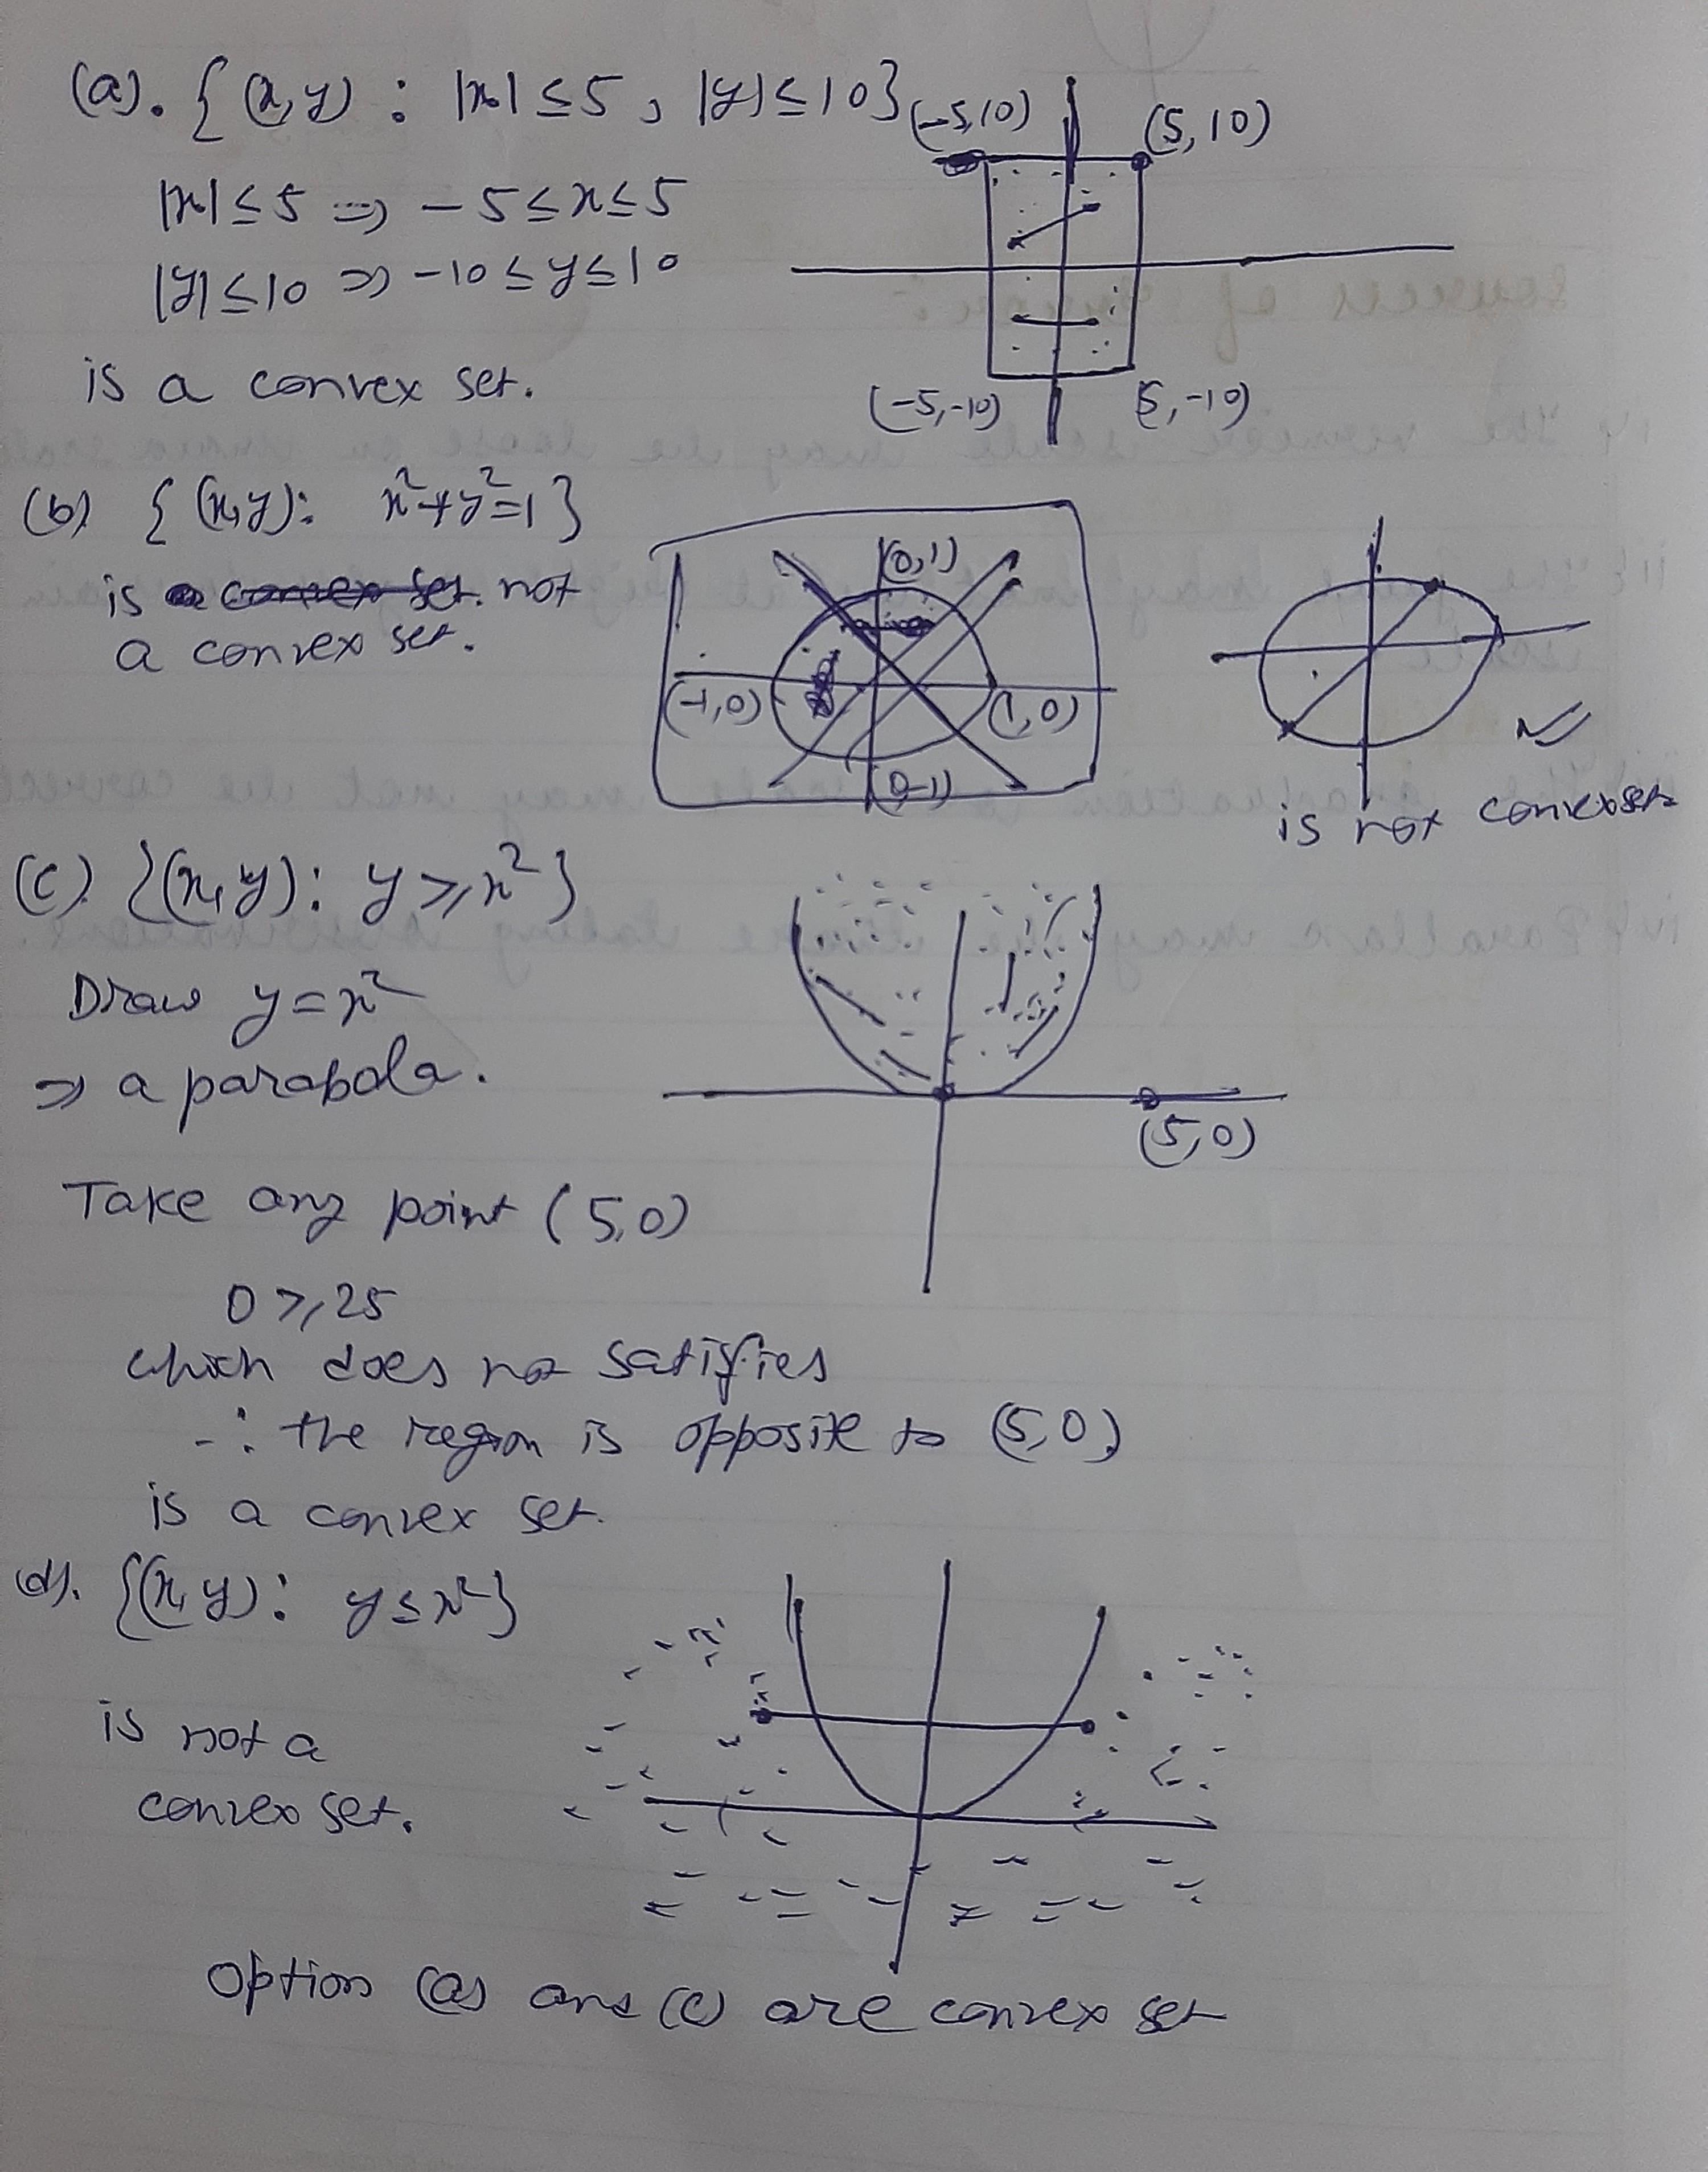 (a). { (x,y) : |x| ≤ 5, |y| ≤ 10}
(-5,10)
(5, 10)
|x| ≤ 5 ⇒ -5 ≤ x ≤ 5
|y| ≤ 10 ⇒ -10 ≤ y ≤ 10
is a convex set.
(-5,-10)
5,-10)
(b) { (x,y): x²+y²=1}
is a convex set. not
a convex set.
(0,1)
(-1,0)
(1,0)
(0-1)
is not convex set
(c). {(x,y): y ≥ x²}
Draw y = x²
⇒ a parabola.
(5,0)
Take any point (5,0)
0 ≥ 25
which does not satisfies
∴ the region is opposite to (5,0)
is a convex set.
(d). {(x,y): y ≤ x²}
is not a
convex set.
Option (a) and (c) are convex set